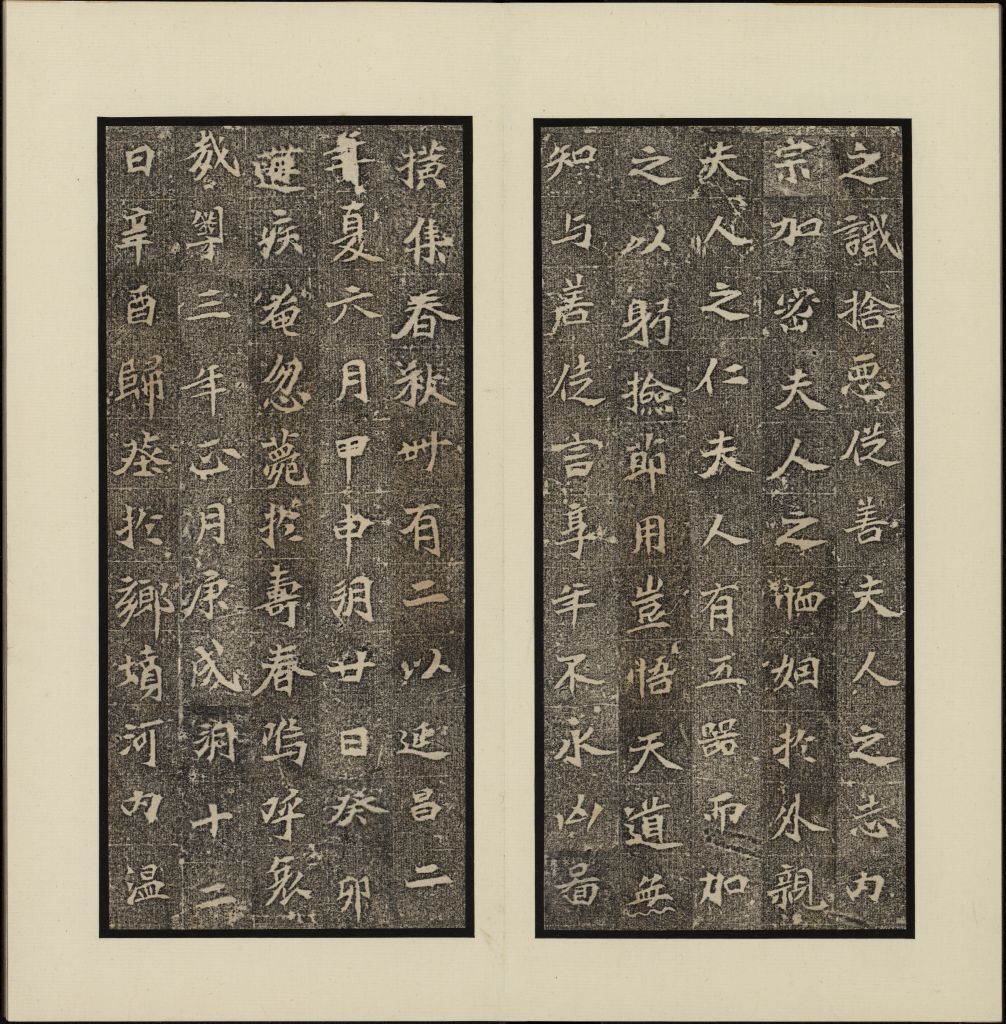 之識捨惡從善夫人之志內
宗加密夫人之恤姻於外親
夫人之仁夫人有五器而加
之以躬撿節用豈悟天道無
知与善徒言享年不永凶啚
橫集春秋卌有二以延昌二
年夏六月甲申朔廿日癸卯
遘疾奄忽薨於壽春嗚呼哀
哉粵三年正月庚戌朔十二
日辛酉歸葬於鄉墳河內溫